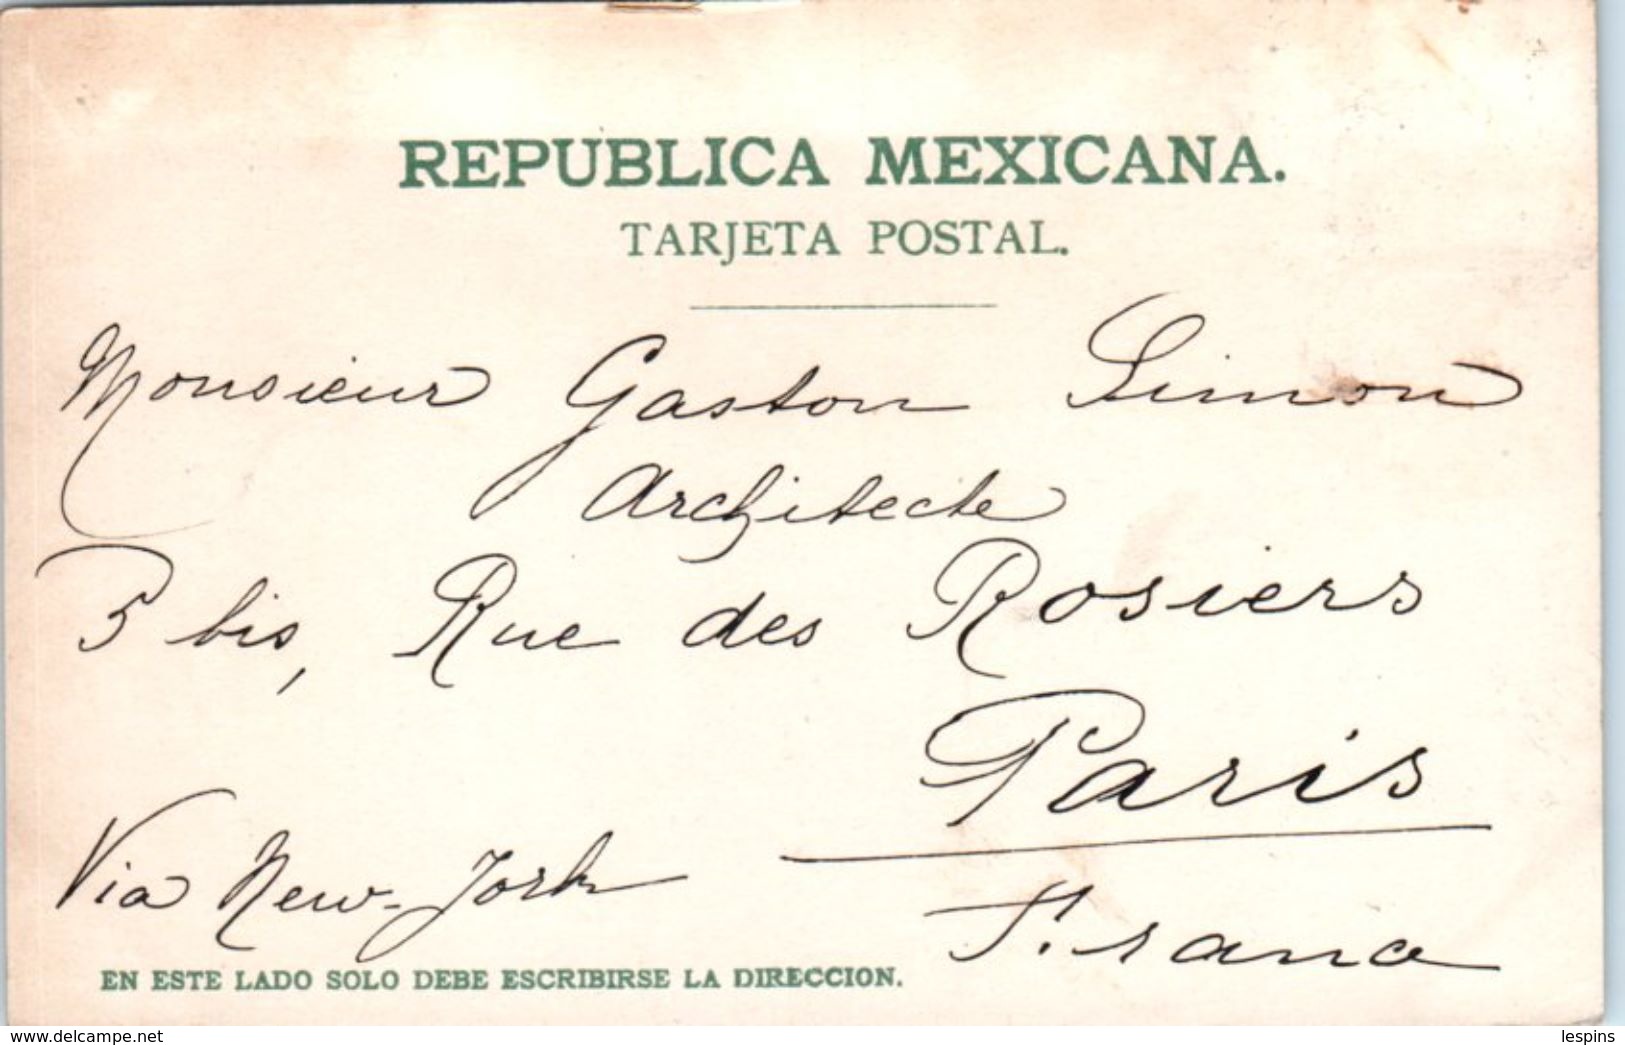 REPUBLICA MEXICANA.
TARJETA POSTAL.
Monsieur Gaston Simon
Architecte
5 bis, Rue des Rosiers
Paris
Via New-York
France
EN ESTE LADO SOLO DEBE ESCRIBIRSE LA DIRECCION.
www.delcampe.net
lespins